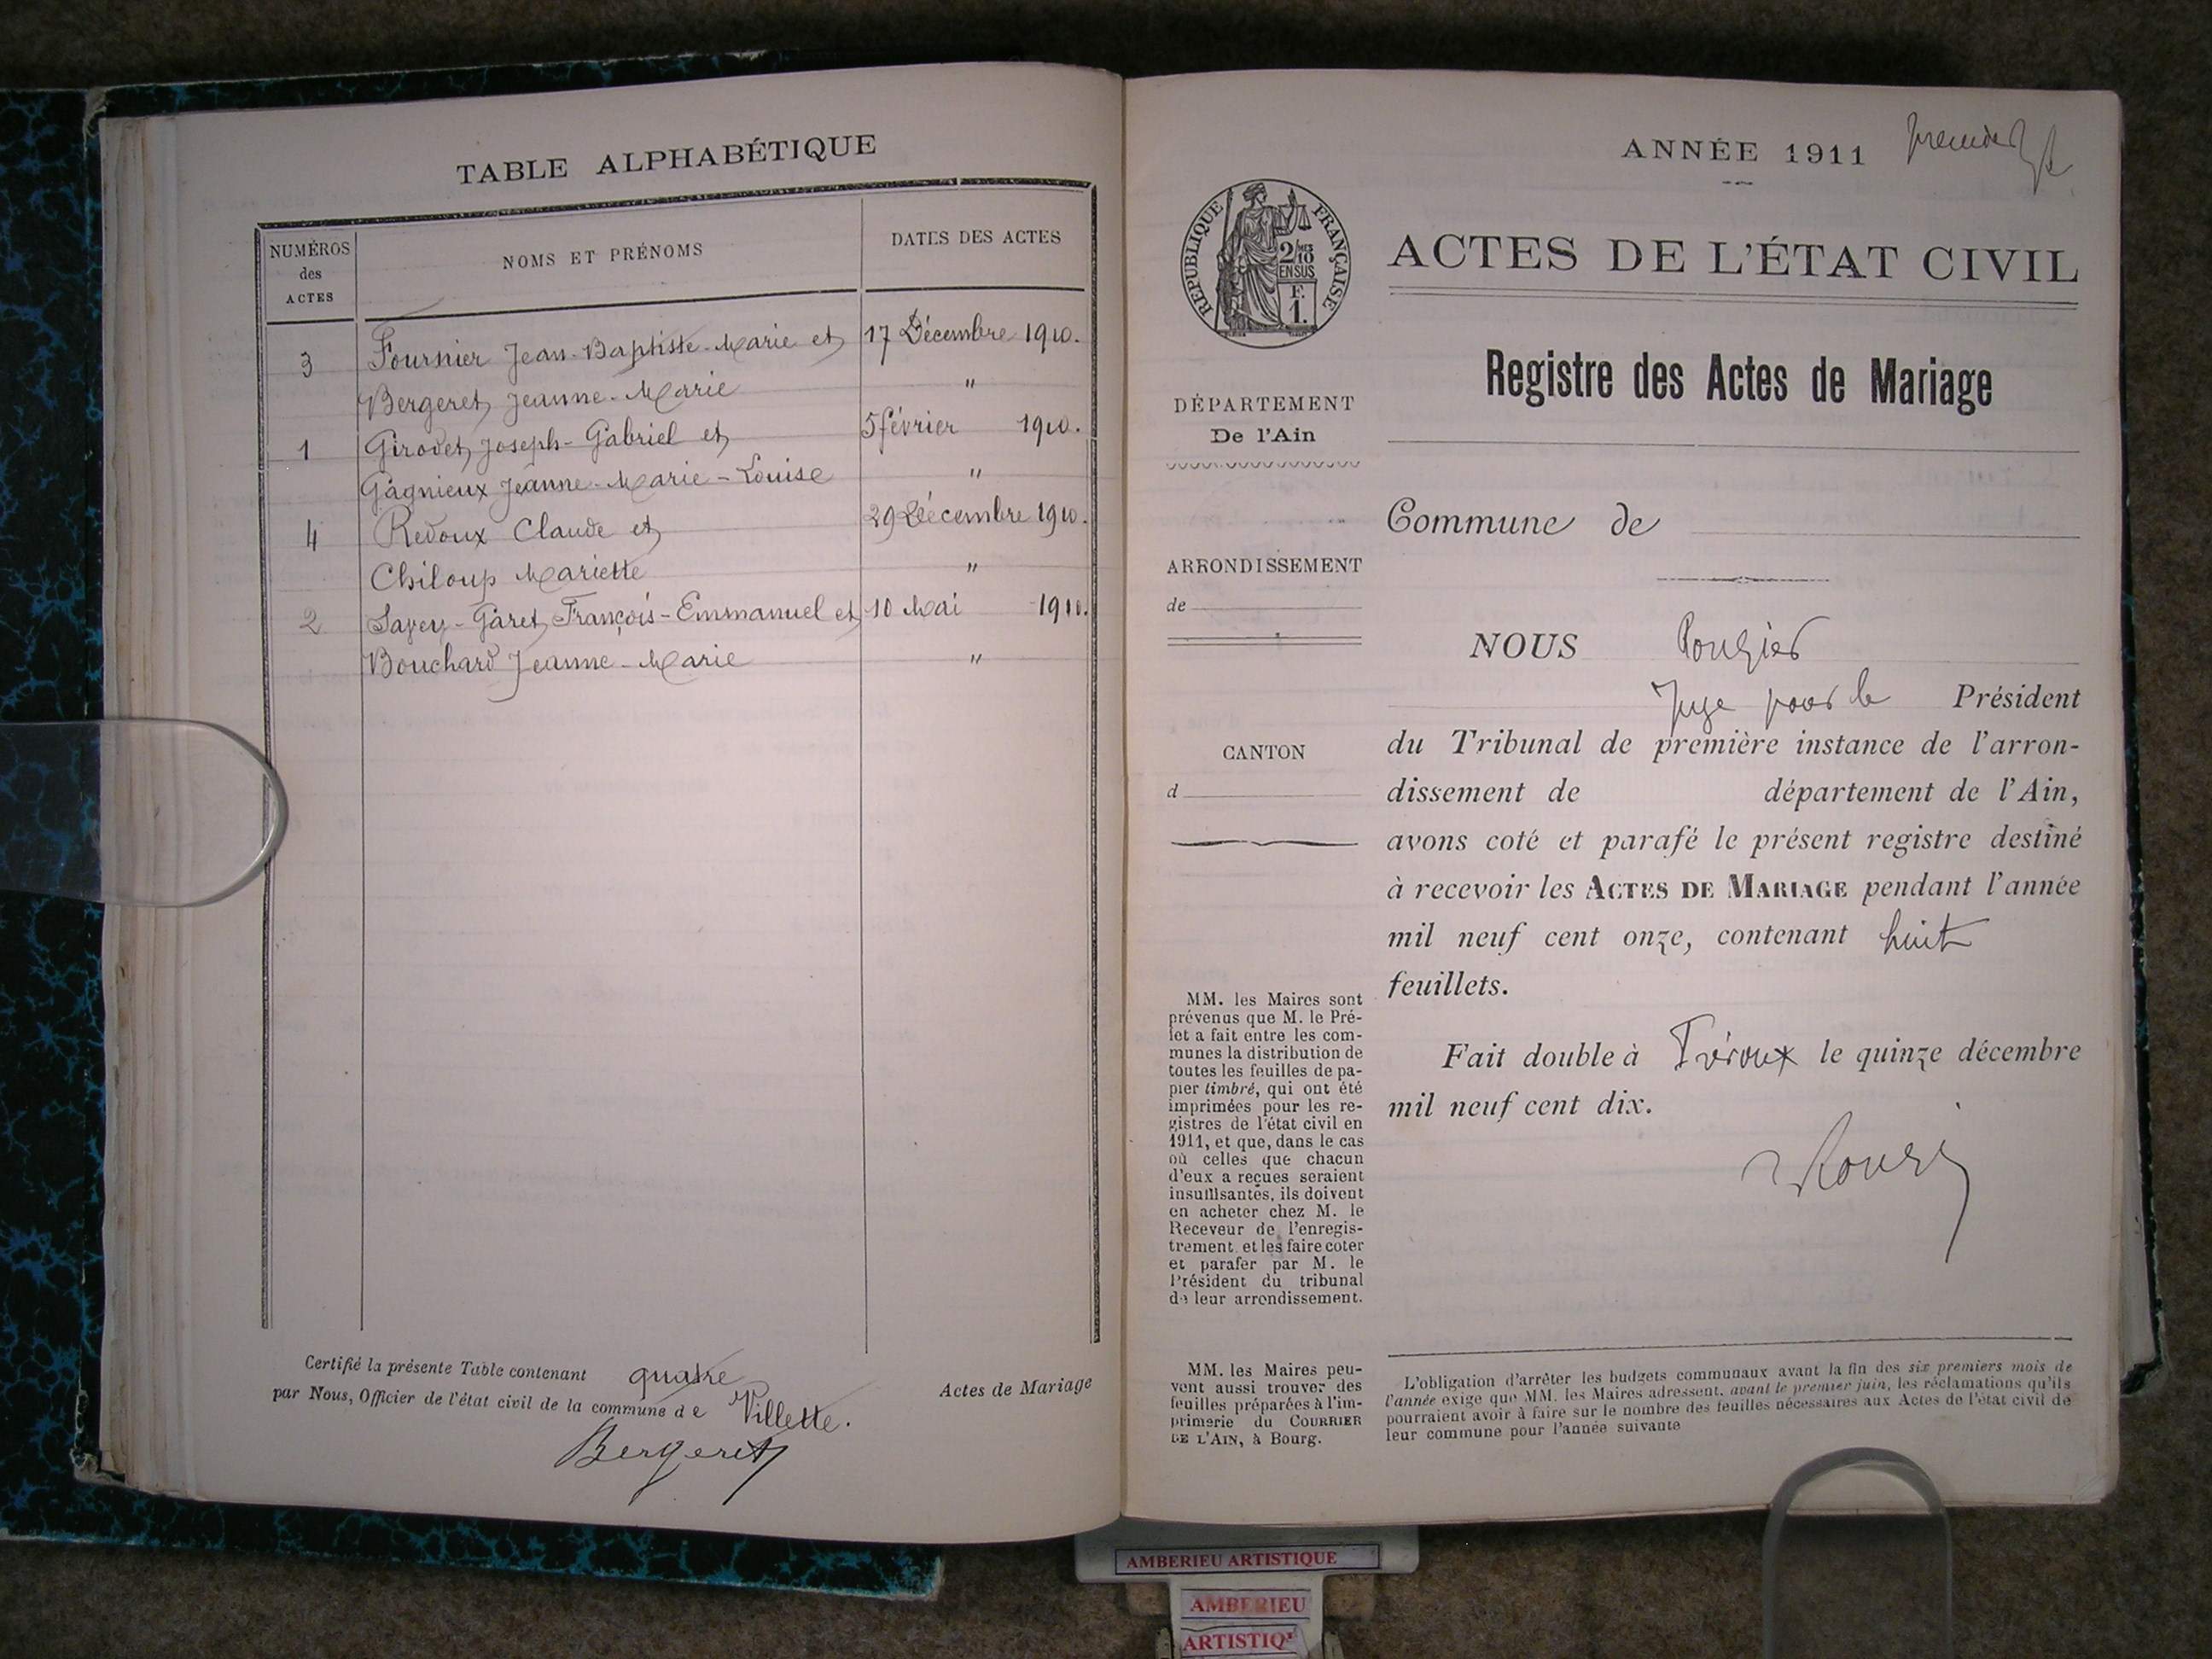 TABLE ALPHABÉTIQUE
NUMÉROS
des
ACTES
NOMS ET PRÉNOMS
DATES DES ACTES
3 Fournier Jean-Baptiste-Marie et 17 Décembre 1910.
Bergeret Jeanne-Marie "
1 Girodet Joseph-Gabriel et 5 février 1910.
Gagnieux Jeanne-Marie-Louise "
4 Redoux Claude et 29 Décembre 1910.
Chiloup Mariette "
2 Savey-Garet François-Emmanuel et 10 Mai 1910.
Bouchard Jeanne-Marie "
Certifié la présente Table contenant quatre
par Nous, Officier de l'état civil de la commune de Villette.
Actes de Mariage
Bergeret
ANNÉE 1911
RÉPUBLIQUE FRANÇAISE
2/10 MES
EN SUS
F.
1.
ACTES DE L'ÉTAT CIVIL
Registre des Actes de Mariage
DÉPARTEMENT
De l'Ain
Commune de
ARRONDISSEMENT
de
CANTON
d
NOUS
Juge pour le Président
du Tribunal de première instance de l'arron-
dissement de département de l'Ain,
avons coté et parafé le présent registre destiné
à recevoir les ACTES DE MARIAGE pendant l'année
mil neuf cent onze, contenant huit
feuillets.
Fait double à Trévoux le quinze décembre
mil neuf cent dix.
MM. les Maires sont
prévenus que M. le Pré-
fet a fait entre les com-
munes la distribution de
toutes les feuilles de pa-
pier timbré, qui ont été
imprimées pour les re-
gistres de l'état civil en
1911, et que, dans le cas
où celles que chacun
d'eux a reçues seraient
insuffisantes, ils doivent
en acheter chez M. le
Receveur de l'enregis-
trement et les faire coter
et parafer par M. le
Président du tribunal
de leur arrondissement.
MM. les Maires peu-
vent aussi trouver des
feuilles préparées à l'im-
primerie du COURRIER
DE L'AIN, à Bourg.
L'obligation d'arrêter les budgets communaux avant la fin des six premiers mois de
l'année exige que MM. les Maires adressent, avant le premier juin, les réclamations qu'ils
pourraient avoir à faire sur le nombre des feuilles nécessaires aux Actes de l'état civil de
leur commune pour l'année suivante
AMBERIEU ARTISTIQUE
AMBERIEU
ARTISTIQ